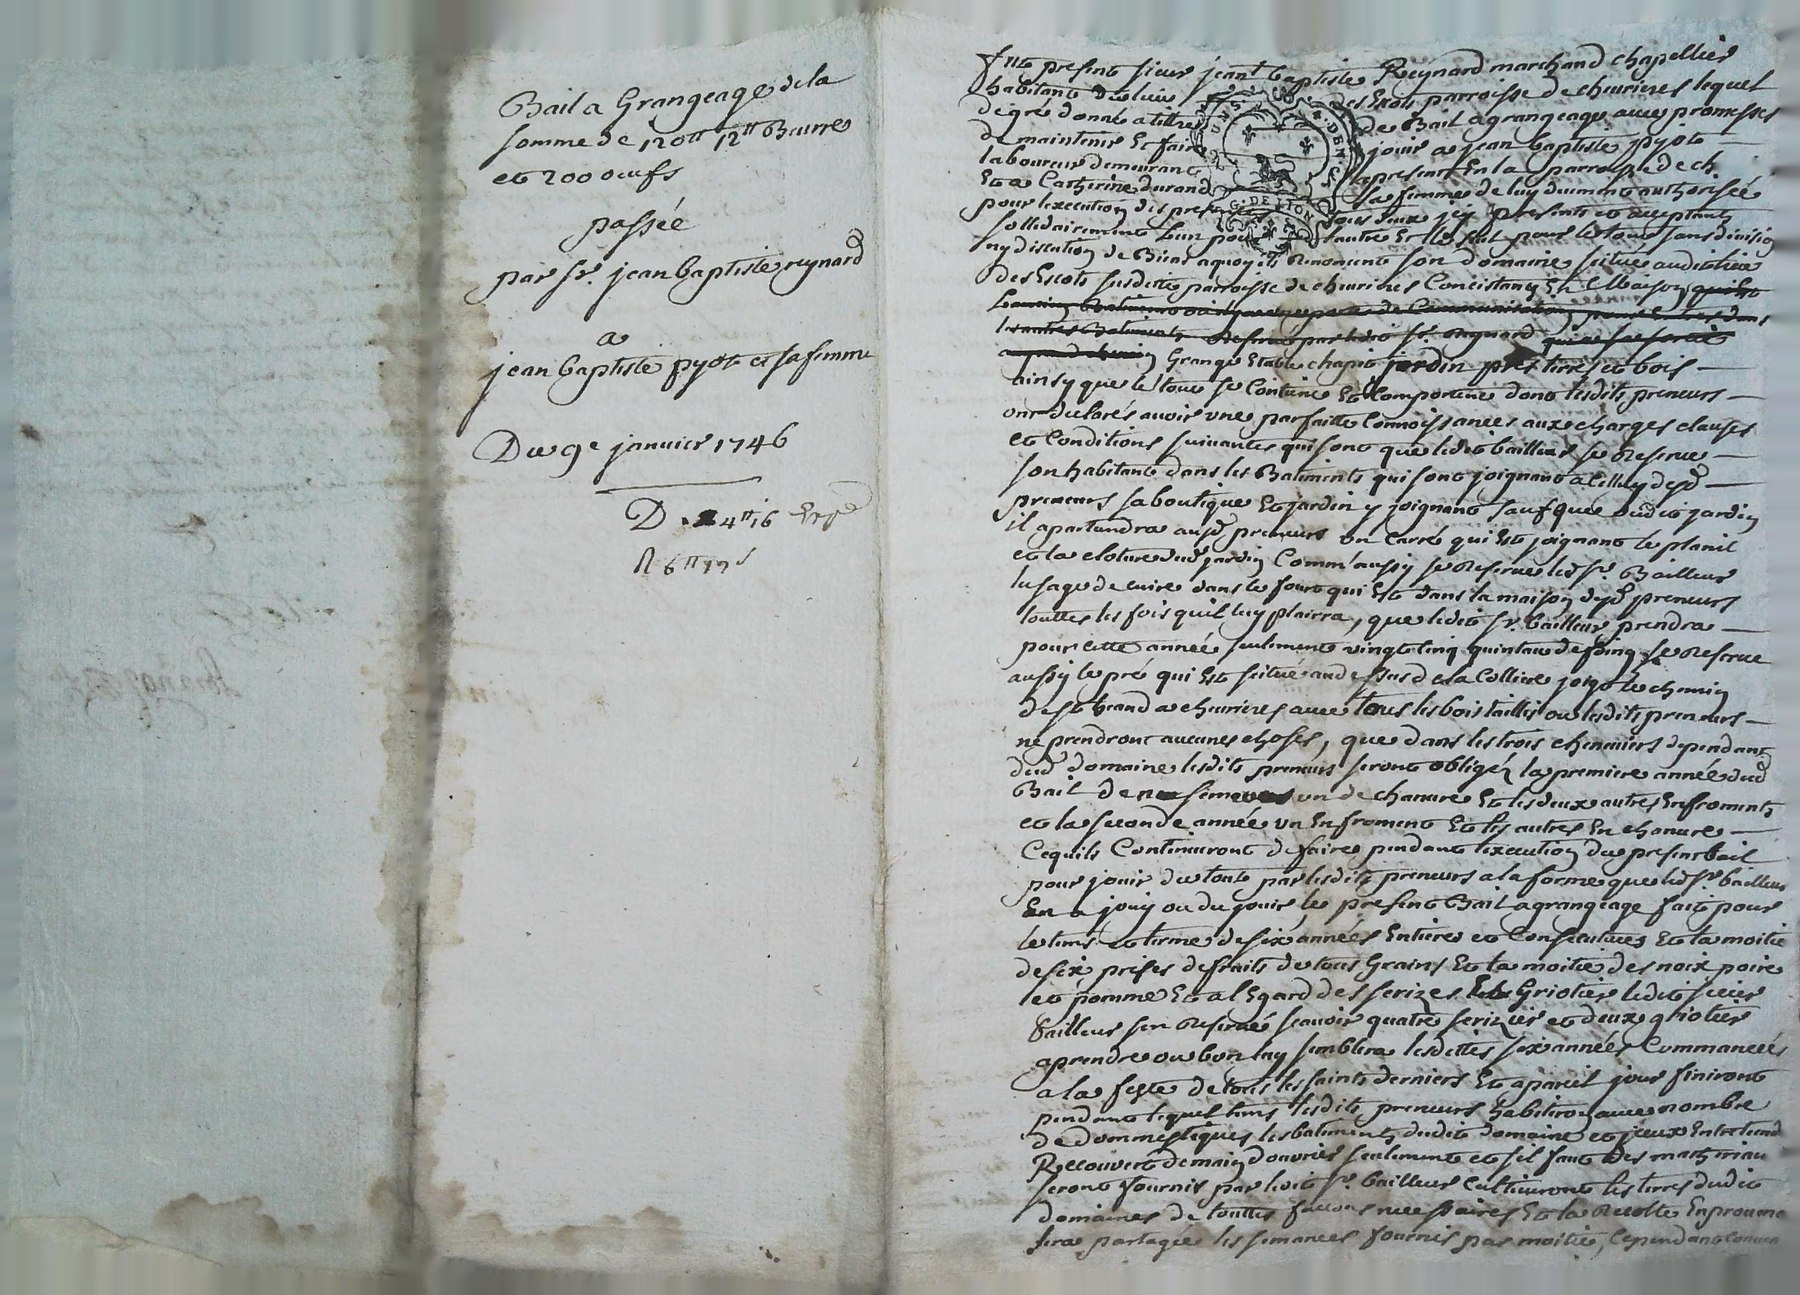 Bail a Grangeage de la
somme de 120tt 12tt Beurre
et 200 oeufs
passée
par Sr. jean baptiste reynard
a
jean baptiste pyot et sa femme
Du 9e janvier 1746
D. 4tt 16
R 6tt
Fut present sieur jean baptiste Reynard marchand chapellier
habitant du lieu des Escots parroisse de chevrieres lequel
de gré donne a tittre de Bail a grangeage avec promesses
de maintenir et faire jouir a jean baptiste pyot
laboureur demeurant a present En la parroisse de ch.
Et a Catherine durand sa femme de luy duement authorisée
pour lexecution des presentes tous deux icy presents et acceptants
sollidairement lun pour lautre Et le seul pour le tout sans division
ny discution de Biens a quoy ils Renoncent son domaine scitué audit lieu
des Escots susditte parroisse de chevrieres Concistant En Maison
les autres Batiments Reservé par ledit Sr. Reynard
Grange Etable chapit jardin prés terres et bois
ainsy que le tout se Contient Et Comporte dont lesdits preneurs
ont declarés avoir une parfaitte Connoissances aux charges clauses
et Conditions suivantes qui sont que ledit bailleur se Reserve
son habitant dans les Batiments qui sont joignant a Celluy desd
preneurs sa boutique Et jardin y joignant sauf que dudit jardin
il apartiendra ausd preneurs un Carré qui Est joignant le
et la cloture dud jardin Comm'aussy se Reserve led Sr. Bailleur
lusage de cuire dans le four qui Est dans la maison desd preneurs
touttes les fois quil luy plairra, que ledit Sr. bailleur prendra
pour cette année seulement vingt cinq quintau de foing se Reserve
aussy le pré qui Est scitué au dessus de la Colliere joigt le chemin
de st heand a chevrieres avec tous les bois taillis ou lesdits preneurs
ne prendront aucunes choses, que dans les trois cheneviers dependant
dud domaine lesdits preneurs seront obligés la premiere année dud
Bail de semer un de chanvre Et les deux autres En froments
et la seconde année un En froment Et les autres En chanvre
Ce quils Continuront de faire pendant lexecution du present bail
pour jouir du tout par lesdits preneurs a la forme que led Sr. bailleur
En a jouy ou du jouir le present Bail a grangeage fait pour
le tems et terme de six années Entieres et Consecutives Et la moitié
de six prises de fruits de tous Grains Et la moitié des noix poire
et pomme Et a lEgard des serizes Et Griotier ledit sieur
Bailleur sen Reservé scavoir quatre serizier et deux griotier
a prendre ou bon luy semblera lesdittes six années Commancées
a la feste de tous les saints derniers Et a pareil jour finiront
pendant lequel tems lesdits preneurs habiteront avec nombre
de dommestiques les batiments dudit domaine et iceux Entretiend
Recouvert de main douvrier seulement et sil faut des matteriau
seront fournis par ledit Sr. bailleur Cultiveront les terres dudit
domaines de touttes facons necessaires Et la Recolte En
sera partagée les semances fournis par moitié, Cependant